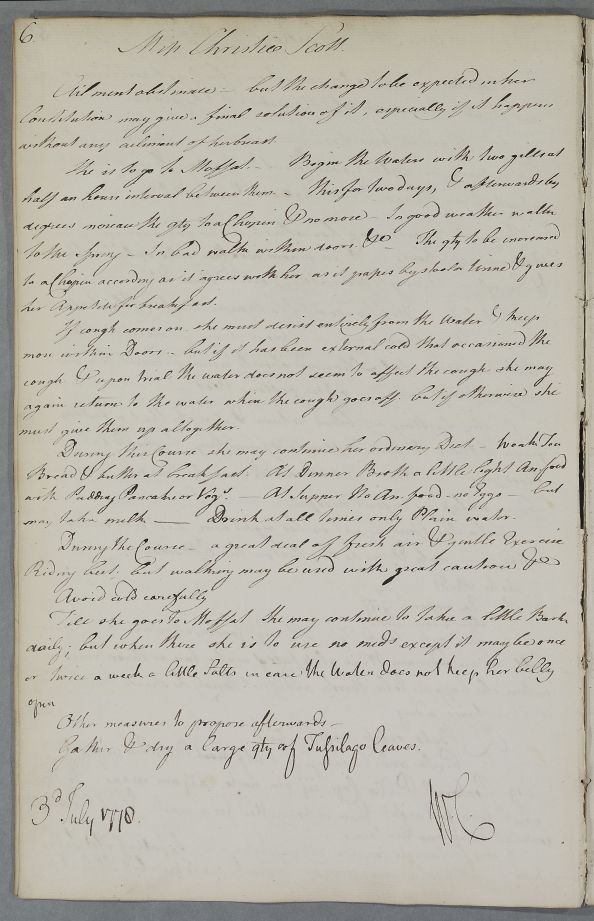 6.
Miss Christies Scott.
Ailment obstinate – but the change to be expected in her
Constitution may give a final solution of it, especially if it happens
without any ailment of her breast
She is to go to Moffat. – Begin the Waters with two gills at
half an hours interval between them – this for two days, & afterwards by
degrees increase the qty to a Chopin & no more – In good weather walk
to the Spring – In bad walk within doors &c – The qty to be increased
to a Chopin according as it agrees with her as it passes by stool or urine & gives
her Appetite for breakfast.
If cough comes on she must desist entirely from the Water & keep
more within Doors – but if it has been external cold that occasioned the
cough & upon trial the water does not seem to affect the cough she may
again return to the water when the cough goes off. but if otherwise she
must give them up altogether.
During this Course she may continue her ordinary Diet – Weak Tea
Bread & butter at breakfast. At Dinner Broth a little light An. food
with Pudding Pancake or Vegs. – At Supper No An. food – no Eggs – but
may take milk — Drink at all times only Plain water.
During the Course – a great deal of fresh air & gentle Exercise
Riding best, but walking may be used with great caution &c
Avoid cold carefully
Till she goes to Moffat She may continue to take a little Bark
daily; but when there she is to use no meds except it may be once
or twice a week a little Salts in case the Water does not keep her belly
open
Other measures to propose afterwards –
Gather & dry a large qty of Tussilago leaves.
3d July 1778.
WC